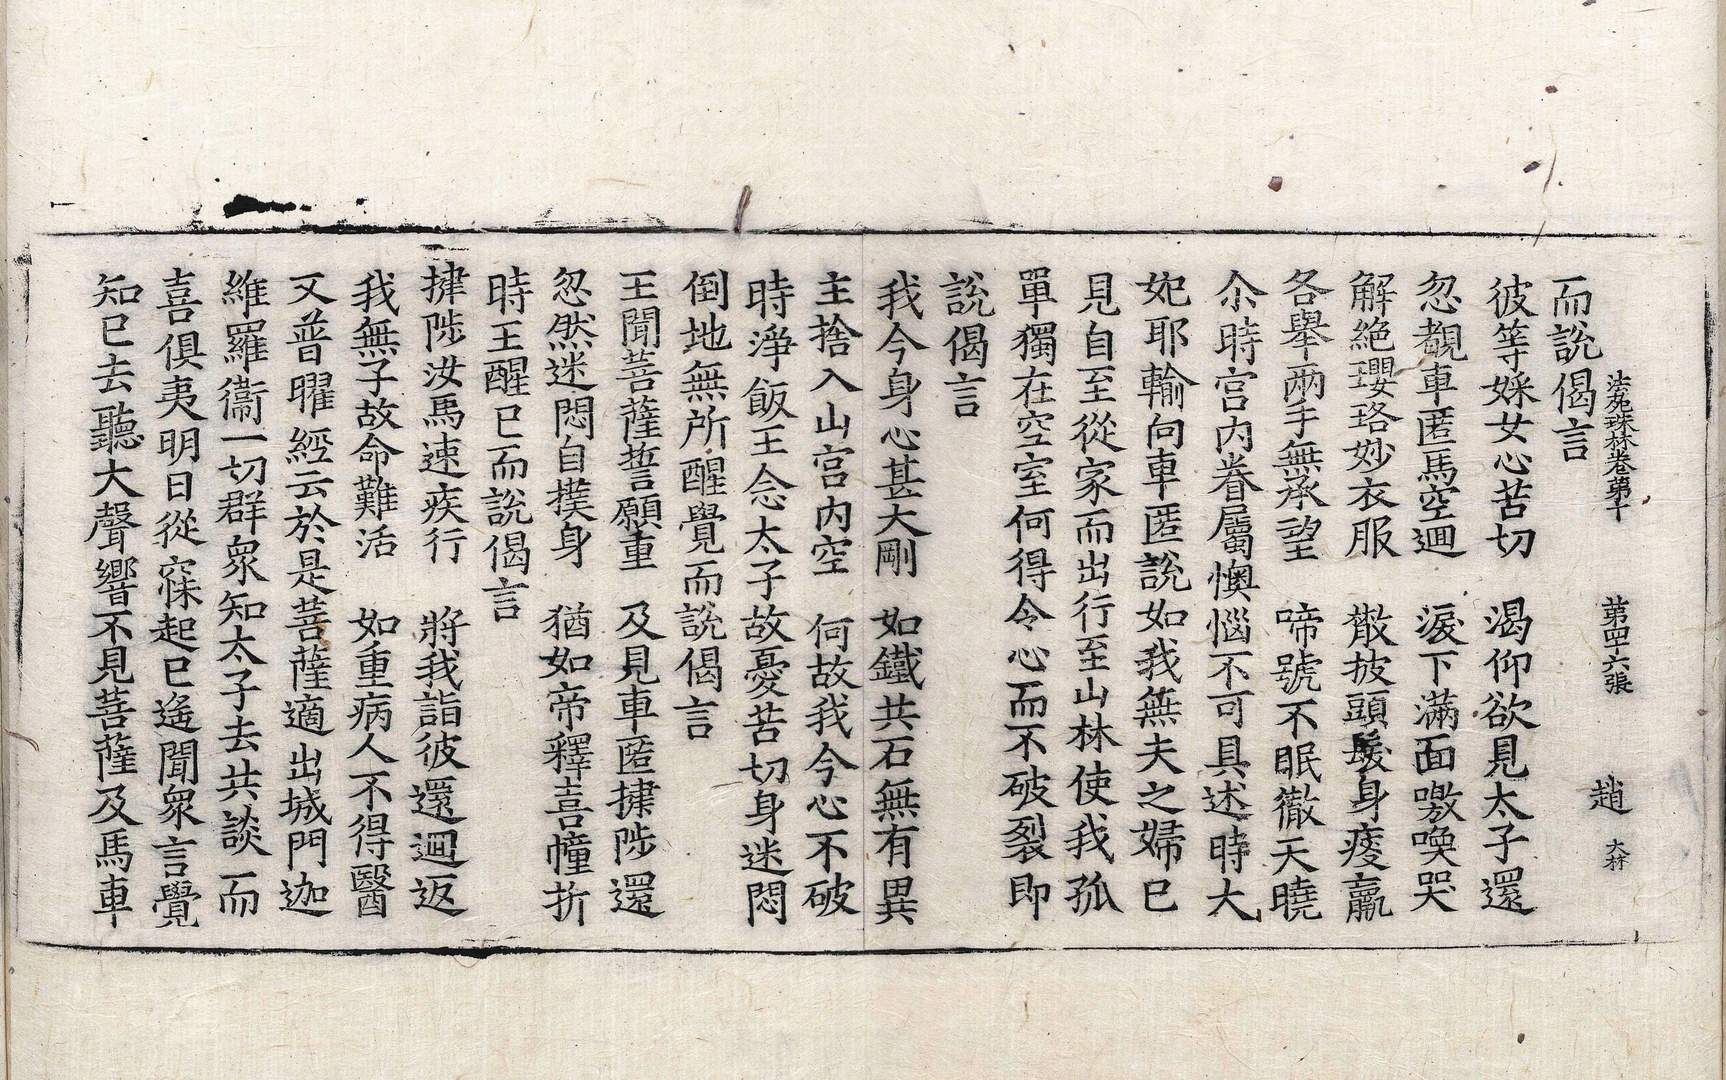 法苑珠林卷第十　第四十六張　趙　大林
而說偈言
彼等婇女心苦切　渴仰欲見太子還
忽覩車匿馬空迴　淚下滿面噭喚哭
解絕瓔珞妙衣服　散披頭髮身痠羸
各舉兩手無承望　啼號不眠徹天曉
尒時宮內眷屬懊惱不可具述時大
妃耶輸向車匿說如我無夫之婦巳
見自至從家而出行至山林使我孤
單獨在空室何得令心而不破裂即
說偈言
我今身心甚大剛　如鐵共石無有異
主捨入山宮內空　何故我今心不破
時淨飯王念太子故憂苦切身迷悶
倒地無所醒覺而說偈言
王聞菩薩誓願重　及見車匿揵陟還
忽然迷悶自撲身　猶如帝釋喜幢折
時王醒巳而說偈言
揵陟汝馬速疾行　將我詣彼還迴返
我無子故命難活　如重病人不得醫
又普曜經云於是菩薩適出城門迦
維羅衞一切群衆知太子去共談而
喜俱夷明日從寐起巳遙聞衆言覺
知巳去聽大聲響不見菩薩及馬車